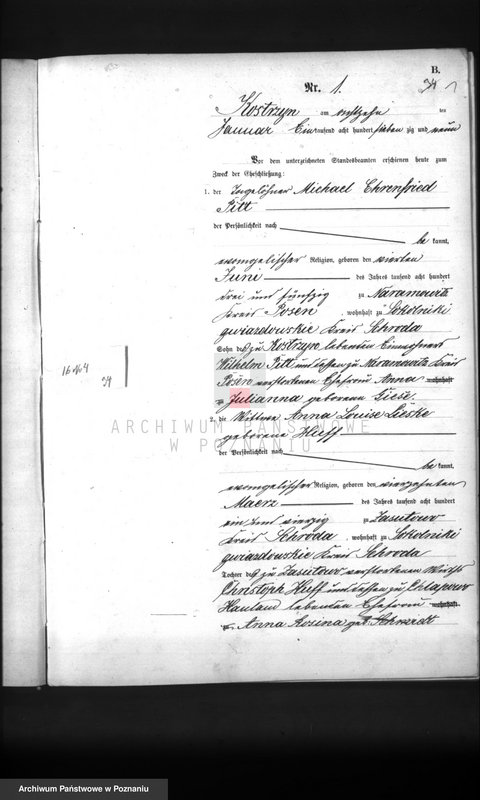 B.
Nr. 1.
Kostrzyn am achtzehn ten
Januar Eintausend acht hundert sieben zig und neun
Vor dem unterzeichneten Standesbeamten erschienen heute zum
Zweck der Eheschließung:
1. der Tagelöhner Michael Ehrenfried
Pitt
der Persönlichkeit nach
be kannt,
evangelischer Religion, geboren den vierten
Juni des Jahres tausend acht hundert
drei und fünfzig zu Naramowitz
Kreis Posen, wohnhaft zu Sokolniki
gwiazdowskie Kreis Schroda
Sohn des zu Kostrzyn lebenden Einwohners
Wilhelm Pitt und dessen zu Naramowitz Kreis
Posen verstorbenen Ehefrau Anna wohnhaft
zu Julianna geborene Giese.
2. die Wittwe Anna Louise Lieske
geborene Huff
der Persönlichkeit nach
be kannt,
evangelischer Religion, geboren den vierzehnten
Maerz des Jahres tausend acht hundert
ein und vierzig zu Jasutowo
Kreis Schroda, wohnhaft zu Sokolniki
gwiazdowskie Kreis Schroda
Tochter des zu Jasutowo verstorbenen Wirths
Christoph Huff und dessen zu Chlapowo
Hauland lebenden Ehefrau wohnhaft
zu Anna Rosina geb. Schmidt
ARCHIWUM PAŃSTWOWE
W POZNANIU
Archiwum Państwowe w Poznaniu